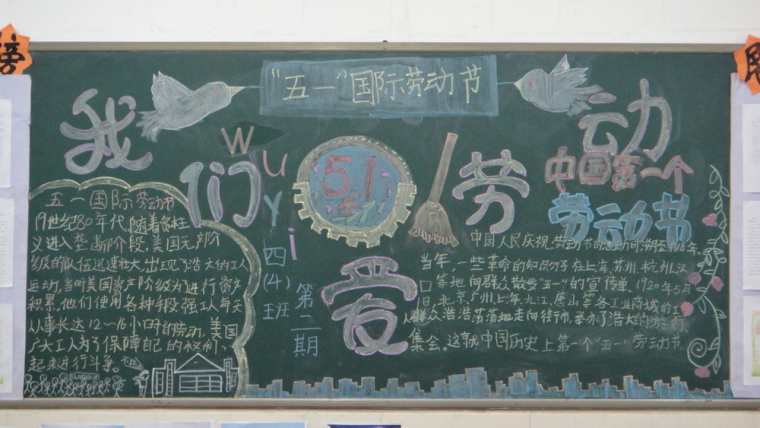 "五一"国际劳动节
我们爱劳动
wuyi
51
四(4)班
第二期
五一国际劳动节
19世纪80年代,随着资本主
义进入垄断阶段,美国无产阶
级的队伍迅速壮大,出现了浩大的工人
运动。当时美国资产阶级为进行资本
积累,他们使用各种手段强工人每天
从事长达12~16小时的劳动。美国
广大工人为了保障自己的权利,
起来进行斗争。
中国第一个
劳动节
中国人民庆祝劳动节的
当年,一些革命的知识分子在上海、苏州、杭州、汉
口等地向群众散发"五一"的宣传单。1920年5月
1日,北京、广州、上海、九江、唐山等各工业城市的工
人群众浩浩荡荡地走向街市,举办了浩大的
集会。这就中国历史上第一个"五一"劳动节